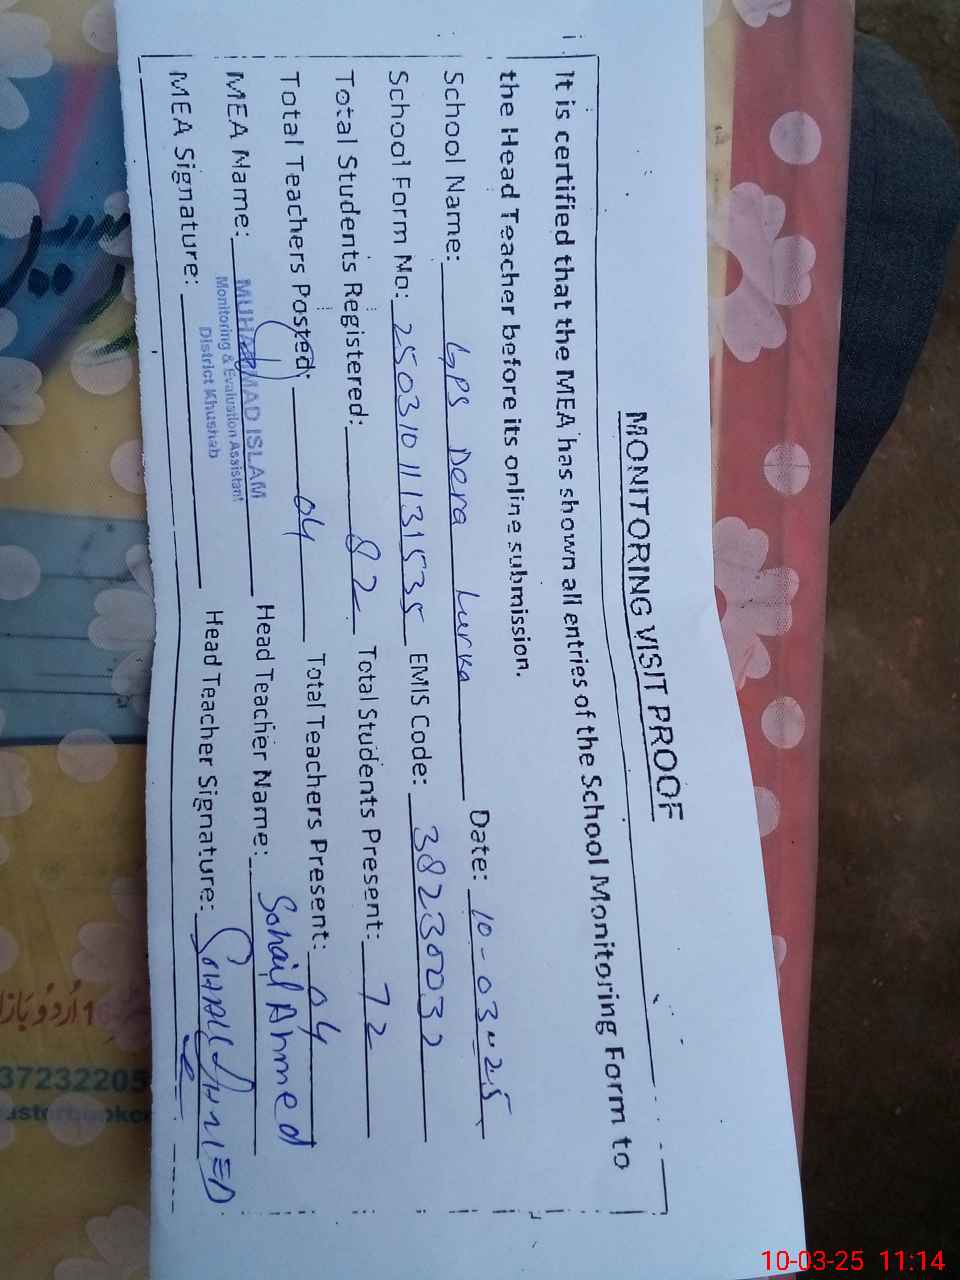 MONITORING VISIT PROOF
It is certified that the MEA has shown all entries of the School Monitoring Form to
the Head Teacher before its online submission.
School Name: GPS Dera Lurka Date: 10-03-25
School Form No: 25031011131535 EMIS Code: 38230032
Total Students Registered: 82 Total Students Present: 72
Total Teachers Posted: 04 Total Teachers Present: 04
MEA Name: MUHAMMAD ISLAM Head Teacher Name: Sohail Ahmed
Monitoring & Evaluation Assistant
District Khushab
MEA Signature: Head Teacher Signature: SOHAIL AHMED
اُردُو بَازا
37232205
10-03-25 11:14